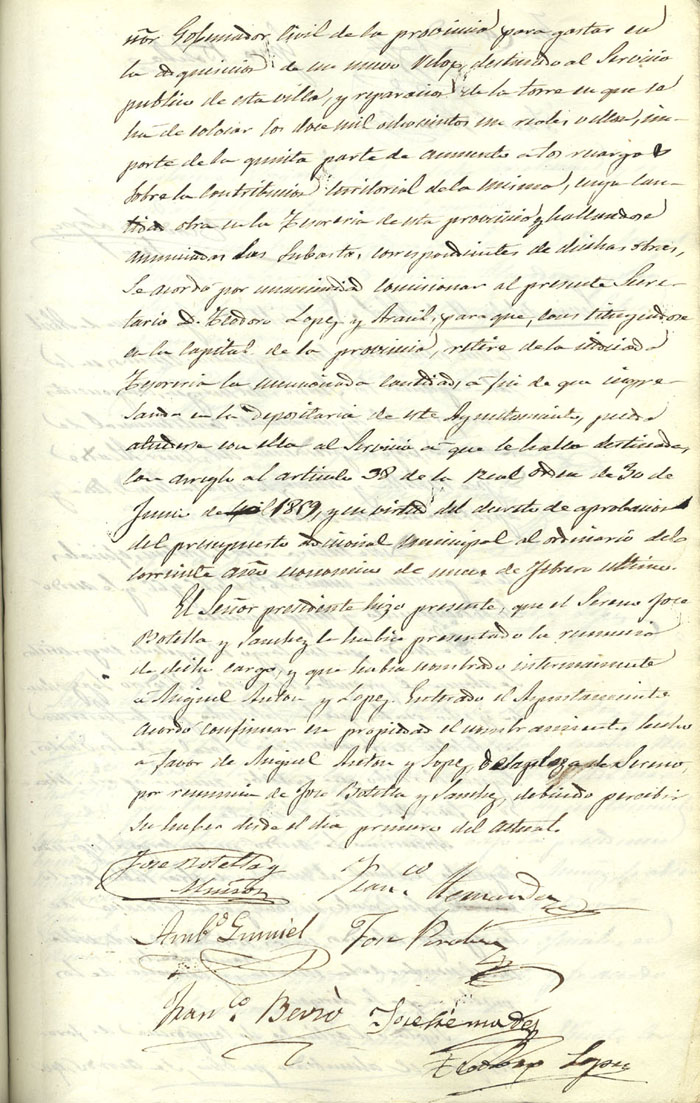 ñor Gobernador Civil de la provincia para gastar en
la adquisicion de un nuevo relox destinado al Servicio
publico de esta villa, y reparacion de la torre en que se
ha de colocar los doce mil ochocientos un reales vellon, im-
porte de la quinta parte de aumento a los recargos
sobre la Contribucion territorial de la misma, cuya can-
tidad obra en la Tesoreria de esta provincia, y hallandose
anunciadas las Subastas correspondientes de dichas obras,
Se acordó por unanimidad comisionar al presente Secre-
tario D. Teodoro Lopez y Arasil, para que, constituyendose
en la Capital de la provincia, retire de la indicada
Tesoreria la mencionada cantidad, a fin de que ingre-
sando en la depositaria de este Ayuntamiento, pueda
atenderse con ella al Servicio a que se halla destinada,
con arreglo al articulo 38 de la Real orden de 30 de
Junio de 1859, y en virtud del decreto de aprobacion
del presupuesto adicional municipal al ordinario del
corriente año economico de nueve de febrero ultimo.
El Señor presidente hizo presente, que el Sereno Jose
Botella y Sanchez le habia presentado la renuncia
de dicho cargo, y que habia nombrado internamente
a Miguel Anton y Lopez. Enterado el Ayuntamiento
acordó confirmar en propiedad el nombramiento hecho
a favor de Miguel Anton y Lopez, de la plaza de Sereno,
por renuncia de Jose Botella y Sanchez, debiendo percibir
su haber desde el dia primero del actual.
Jose Botella y
Franco Hernandez
Ambo Gumiel Jose
Franco Beviò Jose Hernandez
Teodoro Lopez